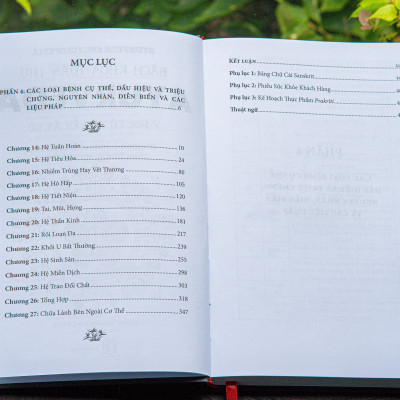 MỤC LỤC
PHẦN 4: CÁC LOẠI BỆNH CỤ THỂ, DẤU HIỆU VÀ TRIỆU
CHỨNG, NGUYÊN NHÂN, DIỄN BIẾN VÀ CÁC
LIỆU PHÁP 6
Chương 14: Hệ Tuần Hoàn 10
Chương 15: Hệ Tiêu Hóa 24
Chương 16: Nhiễm Trùng Hay Vết Thương 80
Chương 17: Hệ Hô Hấp 120
Chương 18: Hệ Tiết Niệu 150
Chương 19: Tai, Mũi, Họng 181
Chương 20: Hệ Thần Kinh 217
Chương 21: Rối Loạn Da
Chương 22: Khối U Bất Thường 239
Chương 23: Hệ Sinh Sản 255
Chương 24: Hệ Miễn Dịch 298
Chương 25: Hệ Trao Đổi Chất
Chương 26: Tổng Hợp 318
Chương 27: Chữa Lành Bên Ngoài Cơ Thể 347
KẾT LUẬN
Phụ lục 1: Bảng Chữ Cái Sanskrit
Phụ lục 2: Phiếu Sức Khỏe Khách Hàng
Phụ lục 3: Kế Hoạch Thực Phẩm Prakriti
Thuật ngữ